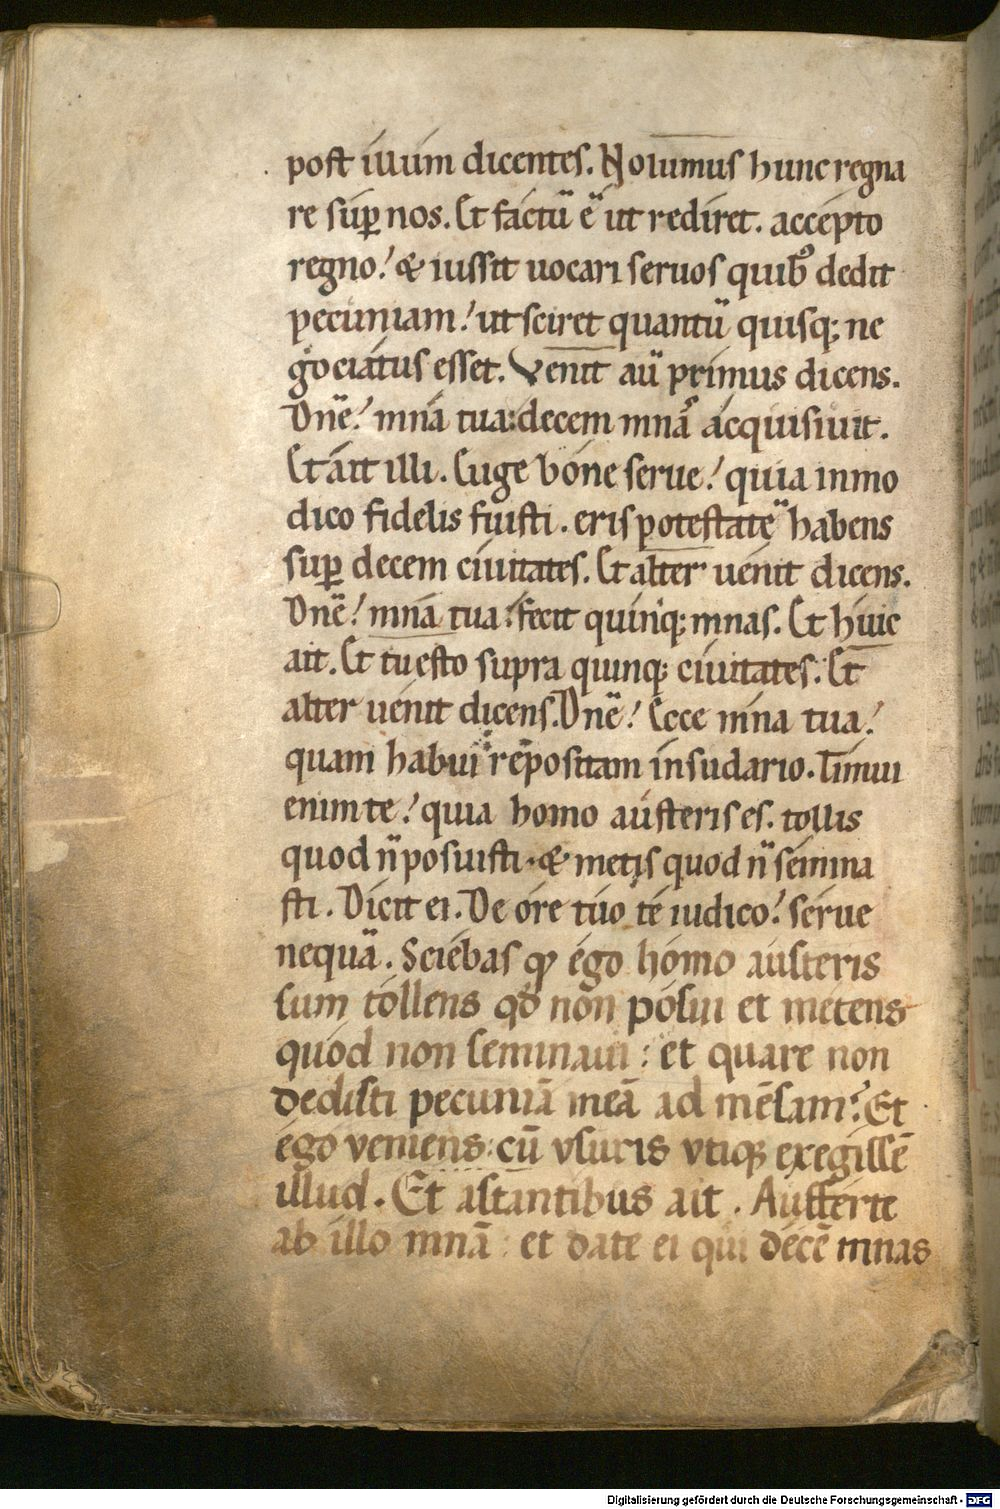 post illum dicentes. Nolumus hunc regna
re suꝑ nos. Et factū ē ut rediret. accepto
regno! & iussit uocari seruos quibꝰ dedit
pecuniam! ut sciret quantū quisq; ne
gociatus esset. Venit aū primus dicens.
Dnē! mna tua: decem mnas acquisiuit.
Et ait illi. Euge bone serue! quia in mo
dico fidelis fuisti. eris potestatē habens
suꝑ decem ciuitates. Et alter uenit dicens.
Dnē! mna tua! fecit quinq; mnas. Et huic
ait. Et tu esto supra quinq; ciuitates. Et
alter uenit dicens. Dnē! Ecce mna tua!
quam habui repositam in sudario. Timui
enim te! quia homo austeris es. tollis
quod n̄ posuisti. & metis quod n̄ semina
sti. Dicit ei. De ore tuo te iudico! serue
nequā. Sciebas qꝫ ego homo austeris
sum tollens qđ non posui et metens
quod non seminaui: et quare non
dedisti pecuniā meā ad mensam? Et
ego veniens: cū vsuris vtiqꝫ exegissē
illud. Et astantibus ait. Aufferte
ab illo mnā: et date ei qui decē mnas
Digitalisierung gefördert durch die Deutsche Forschungsgemeinschaft - DFG